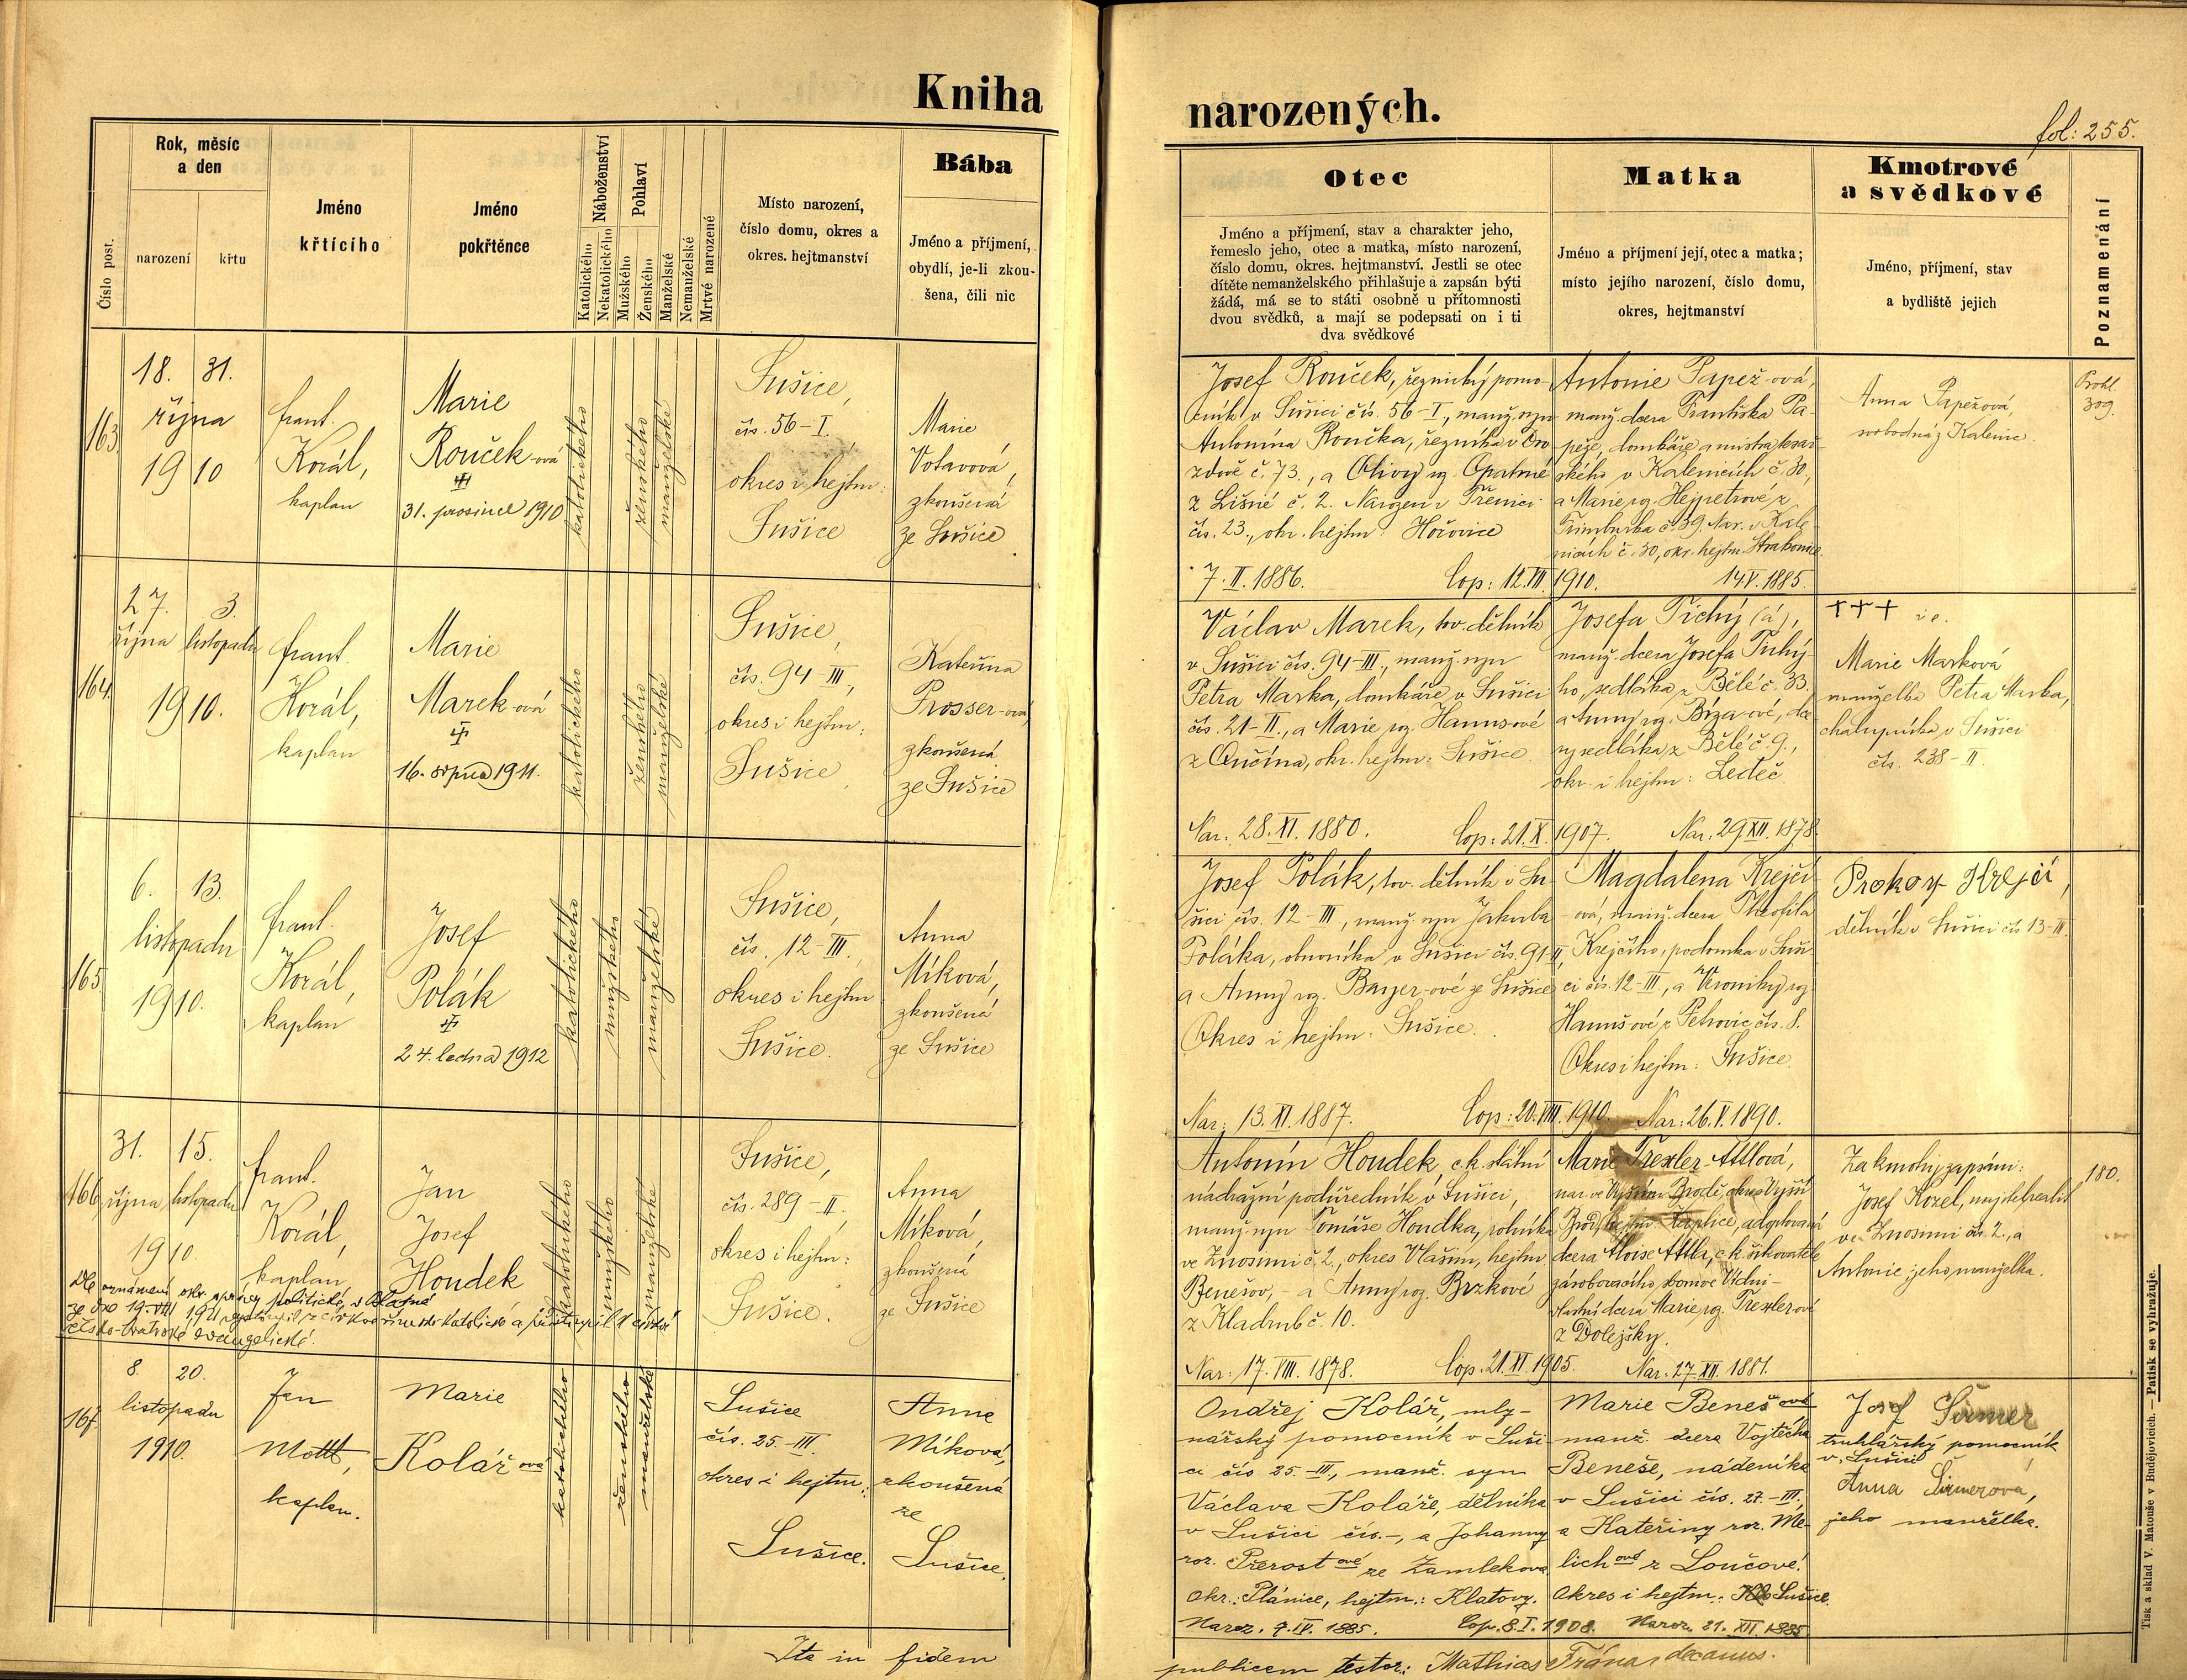 Kniha
Rok, měsíc
a den
narození
křtu
Číslo post.
Jméno
křtícího
Jméno
pokřtěnce
Náboženství
Katolického
Nekatolického
Pohlaví
Mužského
Ženského
Manželské
Nemanželské
Mrtvé narozené
Místo narození,
číslo domu, okres a
okres. hejtmanství
Bába
Jméno a příjmení,
obydlí, je-li zkou-
šena, čili nic
163
18. 31.
října
1910
Frant.
Korál,
kaplan
Marie
Rouček-ová
31. prosince 1910
katolického
ženského
manželské
Sušice,
čís. 56-I.
okres i hejtm:
Sušice
Marie
Votavová,
zkoušená
ze Sušice
164
27. 3.
října listopadu
1910.
Frant.
Korál,
kaplan
Marie
Marek-ová
16. srpna 1911.
katolického
ženského
manželské
Sušice,
čís. 94-III.,
okres i hejtm:
Sušice
Kateřina
Prosser-ová
zkoušená
ze Sušice
165
6. 13.
listopadu
1910.
Frant.
Korál,
kaplan
Josef
Polák
24. ledna 1912
katolického
mužského
manželské
Sušice,
čís. 12-III.,
okres i hejtm
Sušice.
Anna
Míková,
zkoušená
ze Sušice
166
31. 15.
října listopadu
1910.
Frant.
Korál,
kaplan
Jan
Josef
Houdek
katolického
mužského
manželské
Sušice,
čís. 289-II.
okres i hejtm:
Sušice.
Anna
Míková,
zkoušená
ze Sušice
Dle oznámení okr. správy politické v Blatné
ze dne 19-VIII 1921 vystoupil z církve římsko katolické a přistoupil k církvi
česko-bratrské evangelické.
167
8. 20.
listopadu
1910.
Jan
Mottl,
kaplan.
Marie
Kolář ová
katolického
ženského
manželské
Sušice
čís. 25.-III.
okres i hejtm.:
Sušice.
Anna
Míková,
zkoušená
ze
Sušice.
Ita in fidem
narozených.
fol: 255.
Otec
Jméno a příjmení, stav a charakter jeho,
řemeslo jeho, otec a matka, místo narození,
číslo domu, okres. hejtmanství. Jestli se otec
dítěte nemanželského přihlašuje a zapsán býti
žádá, má se to státi osobně u přítomnosti
dvou svědků, a mají se podepsati on i ti
dva svědkové
Matka
Jméno a příjmení její, otec a matka;
místo jejího narození, číslo domu,
okres, hejtmanství
Kmotrové
a svědkové
Jméno, příjmení, stav
a bydliště jejich
Poznamenání
Josef Rouček, řeznický pomo-
cník v Sušici čís. 56-I., manž. syn
Antonína Roučka, řezníka v Dro
zdově č. 73., a Olivy roz. Opatrné
z Lišné č. 2. Narozen v Třenici
čís. 23., okr. hejtm: Hořovice
7. II. 1886.
Cop: 12. VII. 1910.
Antonie Papež-ová,
manž. dcera Františka Pa-
peže, domkáře a mistra tesař-
ského v Kalenicích č. 30,
a Marie roz. Hejpetrové z
č. 39. Nar. v Kale-
nicích č. 30, okr. hejtm. Strakonice.
14. V. 1885.
Anna Papežová,
svobodná z Kalenic.
Prohl.
309.
Václav Marek, tov. dělník
v Sušici čís. 94-III., manž. syn
Petra Marka, domkáře v Sušici
čís. 21-II., a Marie roz. Hanus-ové
z Čučína, okr. hejtm: Sušice.
Nar. 28. XI. 1880.
Cop: 21. X. 1907.
Josefa Tichý (á),
manž. dcera Josefa Tichý-
ho, sedláka z Bělé č. 33.
a Anny roz. Bíza-ové, dce
ry sedláka z Bělé č. 9.,
okr. i hejtm: Ledeč.
Nar. 29 XII. 1878.
+++
Marie Marková
manželka Petra Marka,
chalupníka v Sušici
čís. 238-II.
Josef Polák, tov. dělník v Su-
šici čís. 12-III., manž. syn Jakuba
Poláka, obuvníka v Sušici čís. 91-II,
a Anny roz. Bayer-ové ze Sušice
Okres i hejtm: Sušice.
Nar: 13. XI. 1887.
Cop: 20. VIII. 1910.
Magdalena Krejčí
-ová, manž. dcera Theofila
Krejčího, podomka v Suši-
ci čís. 12-III., a Veroniky roz.
Hanušové z Petrovic čís. 8.
Okres i hejtm: Sušice.
Nar: 26. V. 1890.
Prokop Krejčí,
dělník v Sušici čís 13-III.
Antonín Houdek, c.k. státní
nádražní podúředník v Sušici,
manž. syn Tomáše Houdka, rolníka
ve Znosimi č. 2., okres Vlašim, hejtm
Benešov, - a Anny roz. Brzkové
z Kladrub č. 10.
Nar: 17. VIII. 1878.
Cop. 21. XI. 1905.
Marie Trexler-Attlová,
nar. ve Vyšším Brodě, okres Vyšší
Brod, hejtm. Kaplice, adoptovaná
dcera Aloise Attla, c.k. šikovatele
zeměbraneckého domove Vídni -
vlastní dcera Marie roz. Trexlerové
z Dolejšky.
Nar. 27. XII. 1881.
Za kmotry zapsáni:
Josef Kozel,
ve Znosimi čís. 2., a
Antonie, jeho manželka.
180.
Ondřej Kolář, mly-
nářský pomocník v Suši
ci čís 25.-III., manž. syn
Václava Koláře, dělníka
v Sušici čís.-, a Johanny
roz. Přerost ové ze Zamlekova
okr.: Plánice, hejtm.: Klatovy.
Naroz. 7. IV. 1885.
Cop. 8. I. 1908.
Marie Beneš ová
manž. dcera Vojtěcha
Beneše, nádeníka
v Sušici čís. 27.-III.,
a Kateřiny roz. Me-
lich ové z Loučové.
Okres i hejtm.: Sušice.
Naroz. 21. XII. 1885.
Josef Šírmer
truhlářský pomocník
v Sušici
Anna Šírmerová,
jeho manželka.
publicam testor: Mathias Frána, decanus.
Tisk a sklad V. Matouše v Budějovicích. — Patisk se vyhražuje.